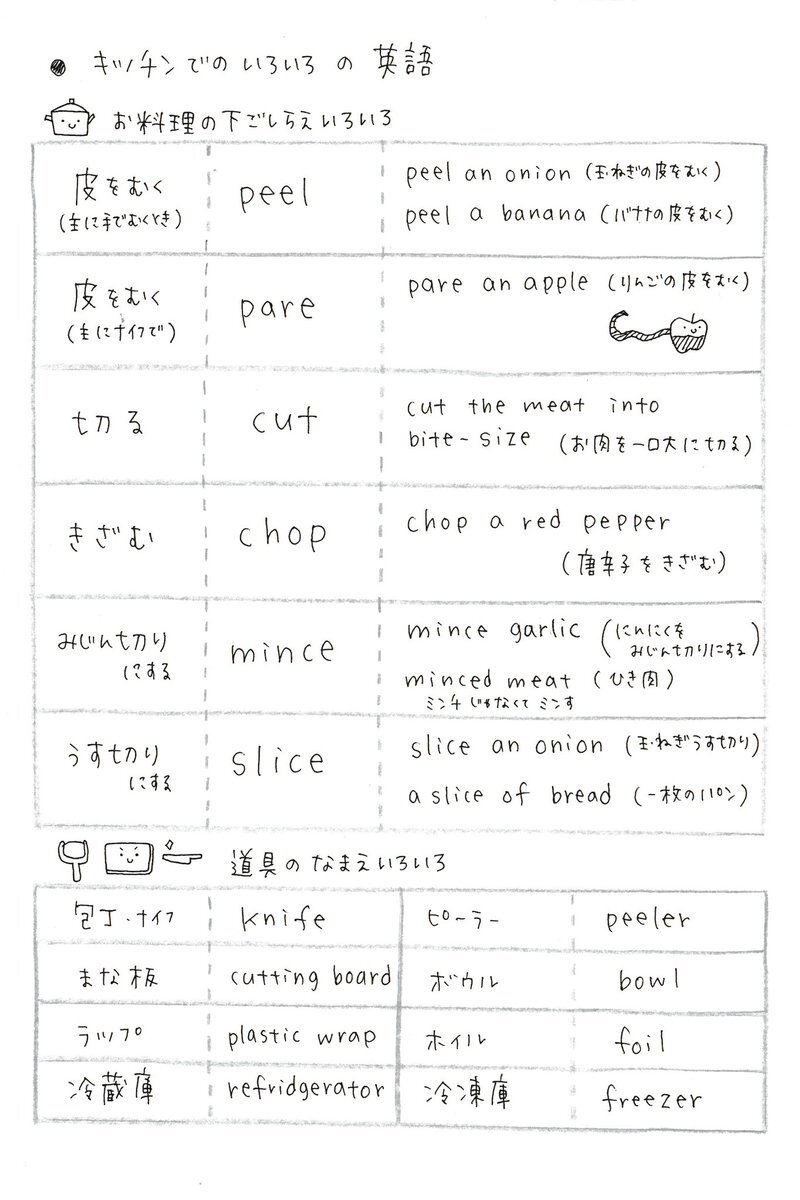 ● キッチンでの いろいろ の 英語
お料理の下ごしらえいろいろ
皮をむく
(主に手でむくとき)
peel
peel an onion (玉ねぎの皮をむく)
peel a banana (バナナの皮をむく)
皮をむく
(主にナイフで)
pare
pare an apple (りんごの皮をむく)
切る
cut
cut the meat into
bite-size (お肉を一口大に切る)
きざむ
chop
chop a red pepper
(唐辛子をきざむ)
みじん切り
にする
mince
mince garlic (にんにくを
みじん切りにする)
minced meat (ひき肉)
ミンチ じゃなくて ミンす
うす切り
にする
slice
slice an onion (玉ねぎうす切り)
a slice of bread (一枚のパン)
道具のなまえいろいろ
包丁・ナイフ knife ピーラー peeler
まな板 cutting board ボウル bowl
ラップ plastic wrap ホイル foil
冷蔵庫 refridgerator 冷凍庫 freezer